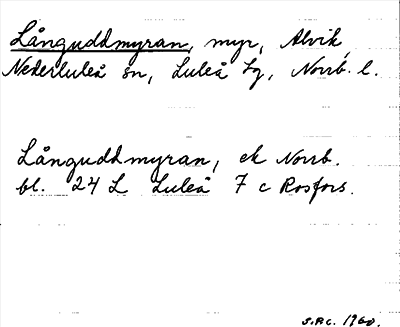 Långuddmyran, myr, Alvik,
Nederluleå sn, Luleå tg, Norrb. l.
Långuddmyran, ek Norrb.
bl. 24 L Luleå 7 c Rosfors.
1960.